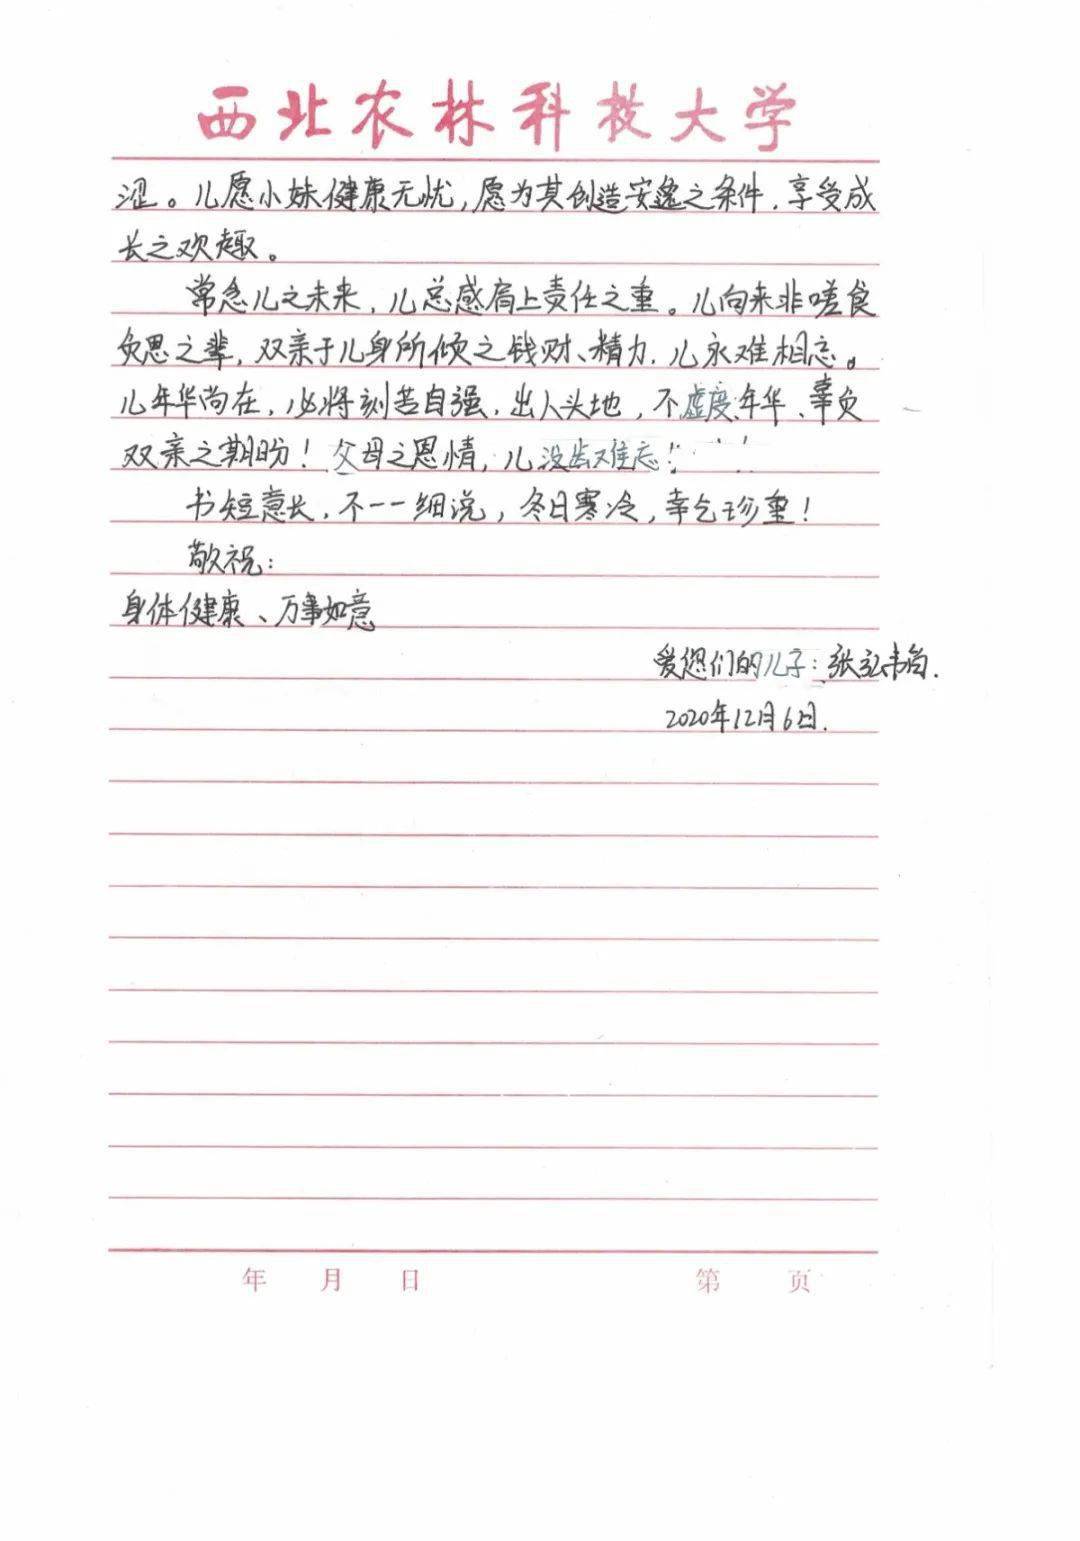 西北农林科技大学
涩。儿愿小妹健康无忧,愿为其创造安逸之条件,享受成
长之欢趣。
常念儿之未来,儿总感肩上责任之重。儿向来非嗟食
负思之辈,双亲于儿身所倾之钱财、精力,儿永难相忘。
儿年华尚在,必将刻苦自强,出人头地,不虚度年华、辜负
双亲之期盼!父母之恩情,儿没齿难忘!
书短意长,不一一细说,冬日寒冷,幸乞珍重!
敬祝:
身体健康、万事如意
爱您们的儿子:张弘韦
2020年12月6日.
年 月 日 第 页